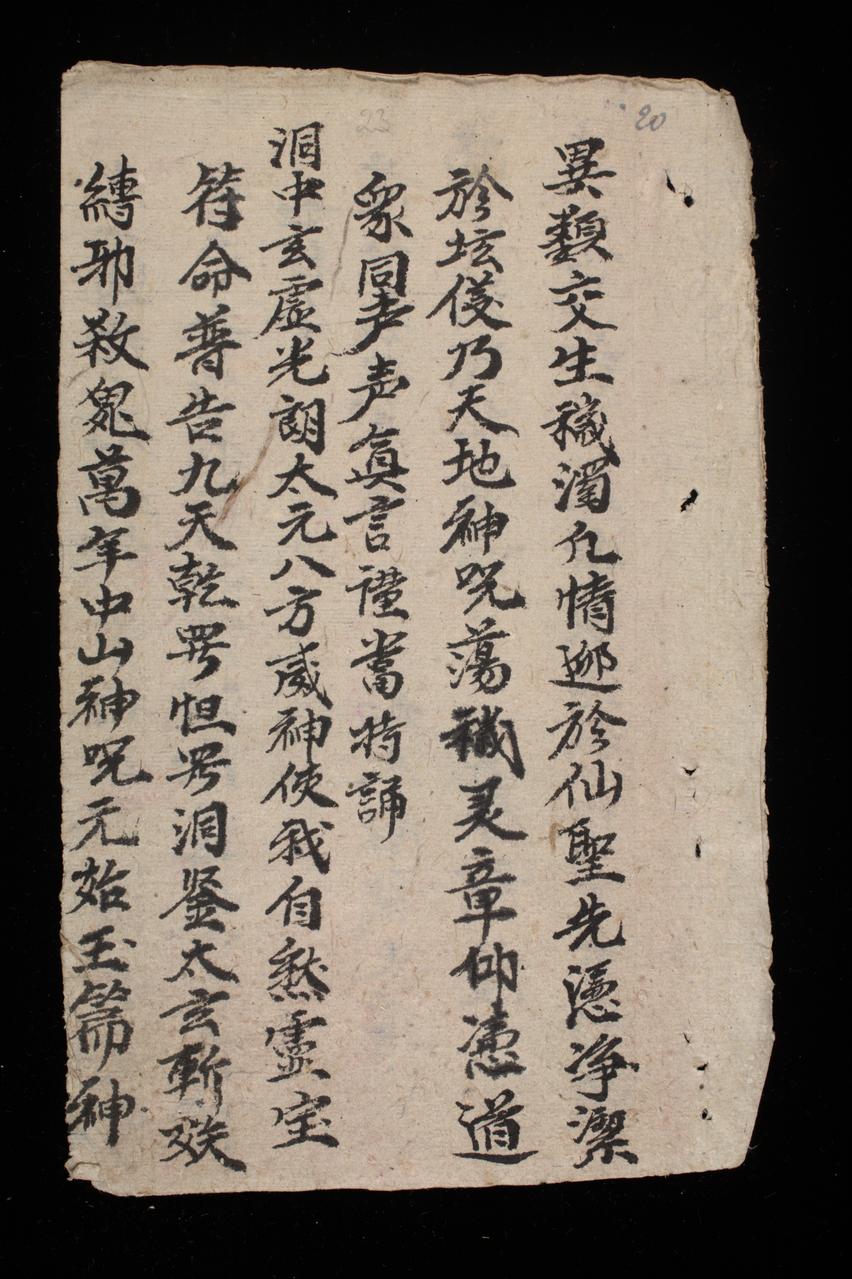 20
23
異類交生穢濁凢情迎於仙聖先憑净潔
於坛仪乃天地神咒蕩穢灵章仰憑道
眾同声声真言謹當持誦
洞中玄虛光朗太元八方威神使我自然靈宝
符命普告九天乾罗怛罗洞鉴太玄斬妖
縛邪殺鬼萬年中山神咒元始玉篇神